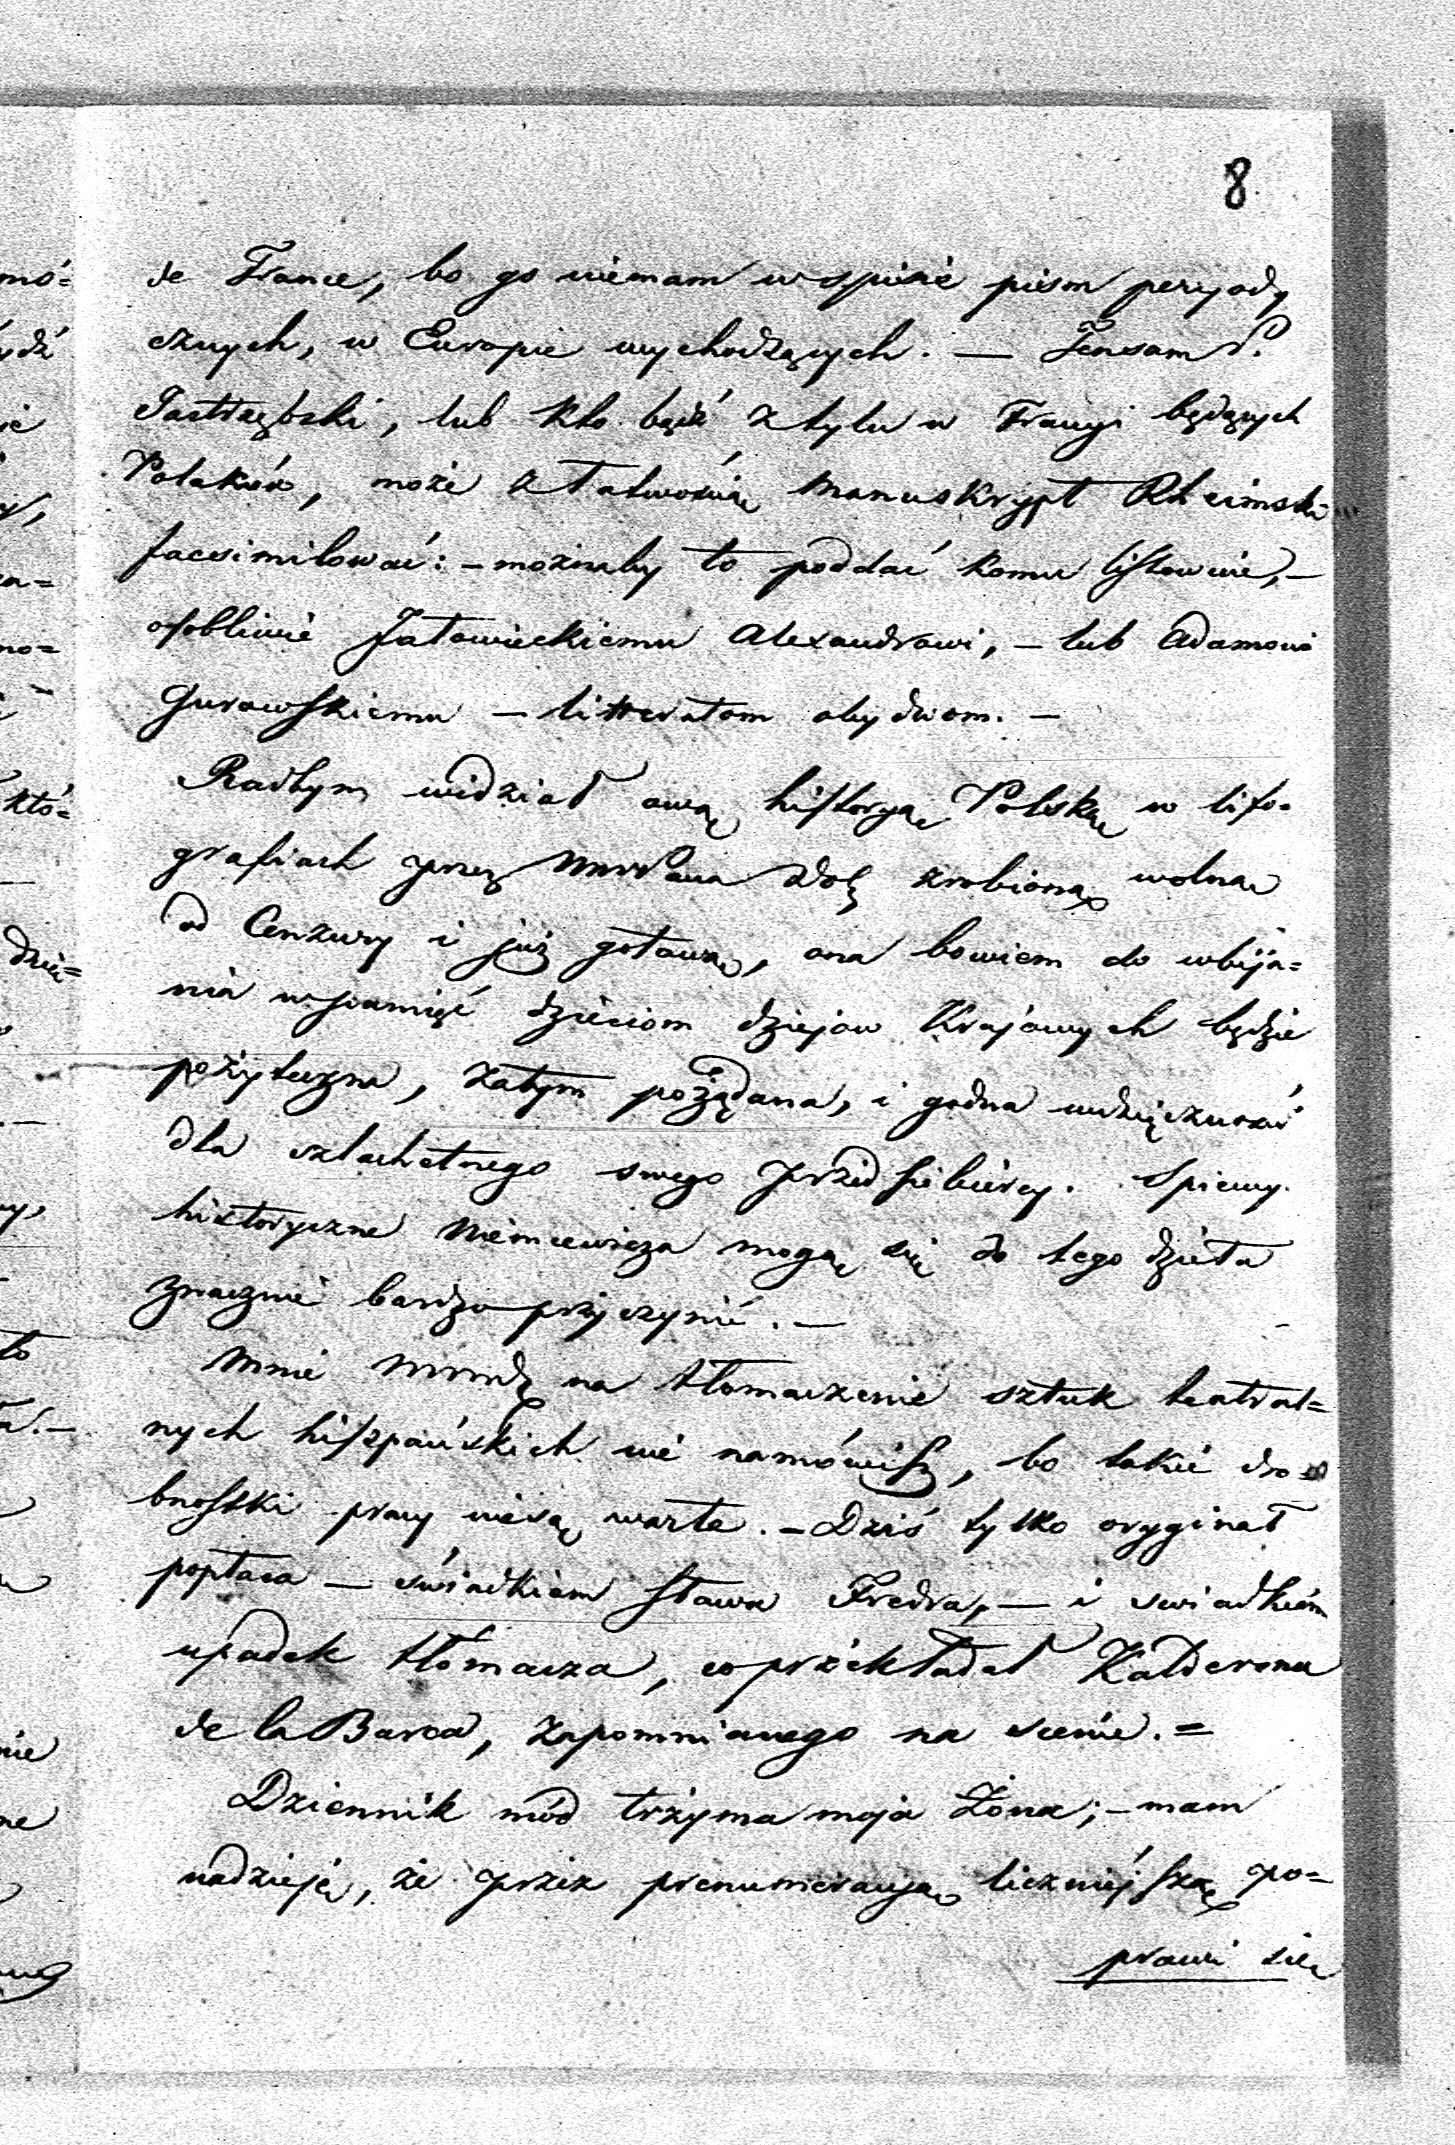 8
de France, bo go niemam w spisie pism peryody
cznych, w Europie wychodzących. — Tensam P.
Jastrzębski, lub kto bądź z tylu w Francyi będących
Polaków, może z łatwością manuskrypt Rheimski
facsimilować: – możnaby to poddać komu listownie, –
osobliwie Jełowieckiemu Alexandrowi, – lub Adamowi
Gurowskiemu – litteratom obydwom. –
Radbym widział ową historyą Polską w lito-
grafiach przez zrobioną wolną
od Cenzury i już gotową, ona bowiem do wbija=
nia w pamięć dzieciom dziejow Krajowych będzie
pożyteczna, zatym pożądana, i godna wdzięczności
dla szlachetnego swego przedsiebiercy. Spiewy
historyczne Niemcewicza mogą się do tego dzieła
znacznie bardzo przyczynić. —
Mnie na tłomaczenie sztuk teatral=
nych hiszpańskich nie namówisz, bo takie dro=
bnostki pracy nie są warte. – Dziś tylko oryginał
popłaca — świadkiem sława Fredra, — i swiadkiem
upadek tłómacza, co przekładał Kalderona
de la Barca, zapomnianego na scenie. =
Dziennik mód trzyma moja Żona; – mam
nadzieję, że przez prenumeracyą liczniejszą po=
prawi się
mó=
ydź
ie
za=
no=
któ=
dzię=
to
nie
ne